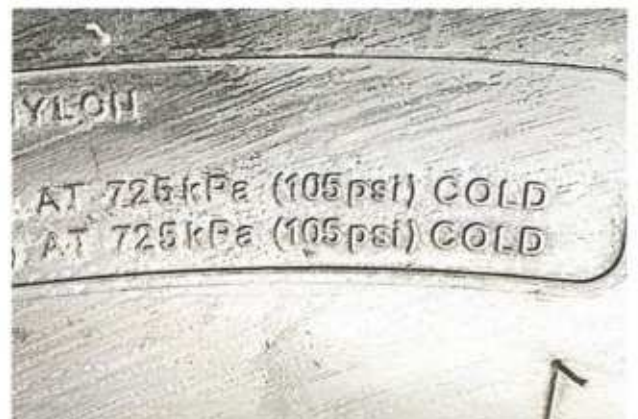 NYLON
AT 725kPa (105psi) COLD
AT 725kPa (105psi) COLD